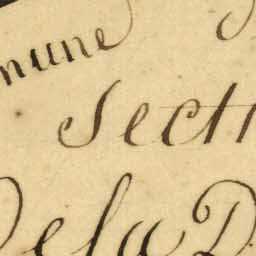 mune
Secti
De la D